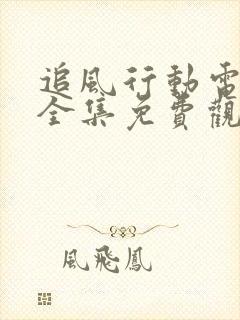 追風行動電
全集免費觀
風飛鳳